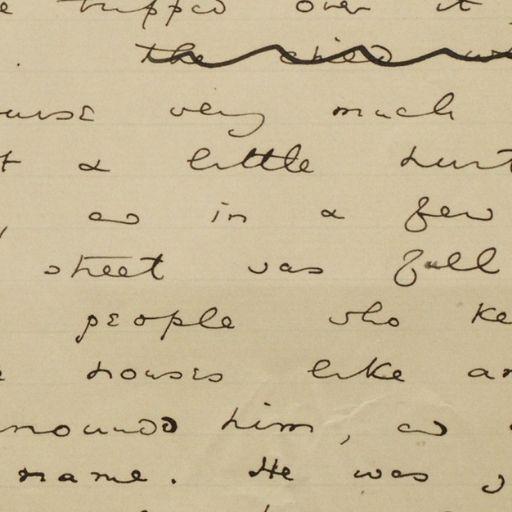 tripped over it
the child
very much
a little hurt
as in a few
street was full
people who ke
houses like an
him, as
name. He was